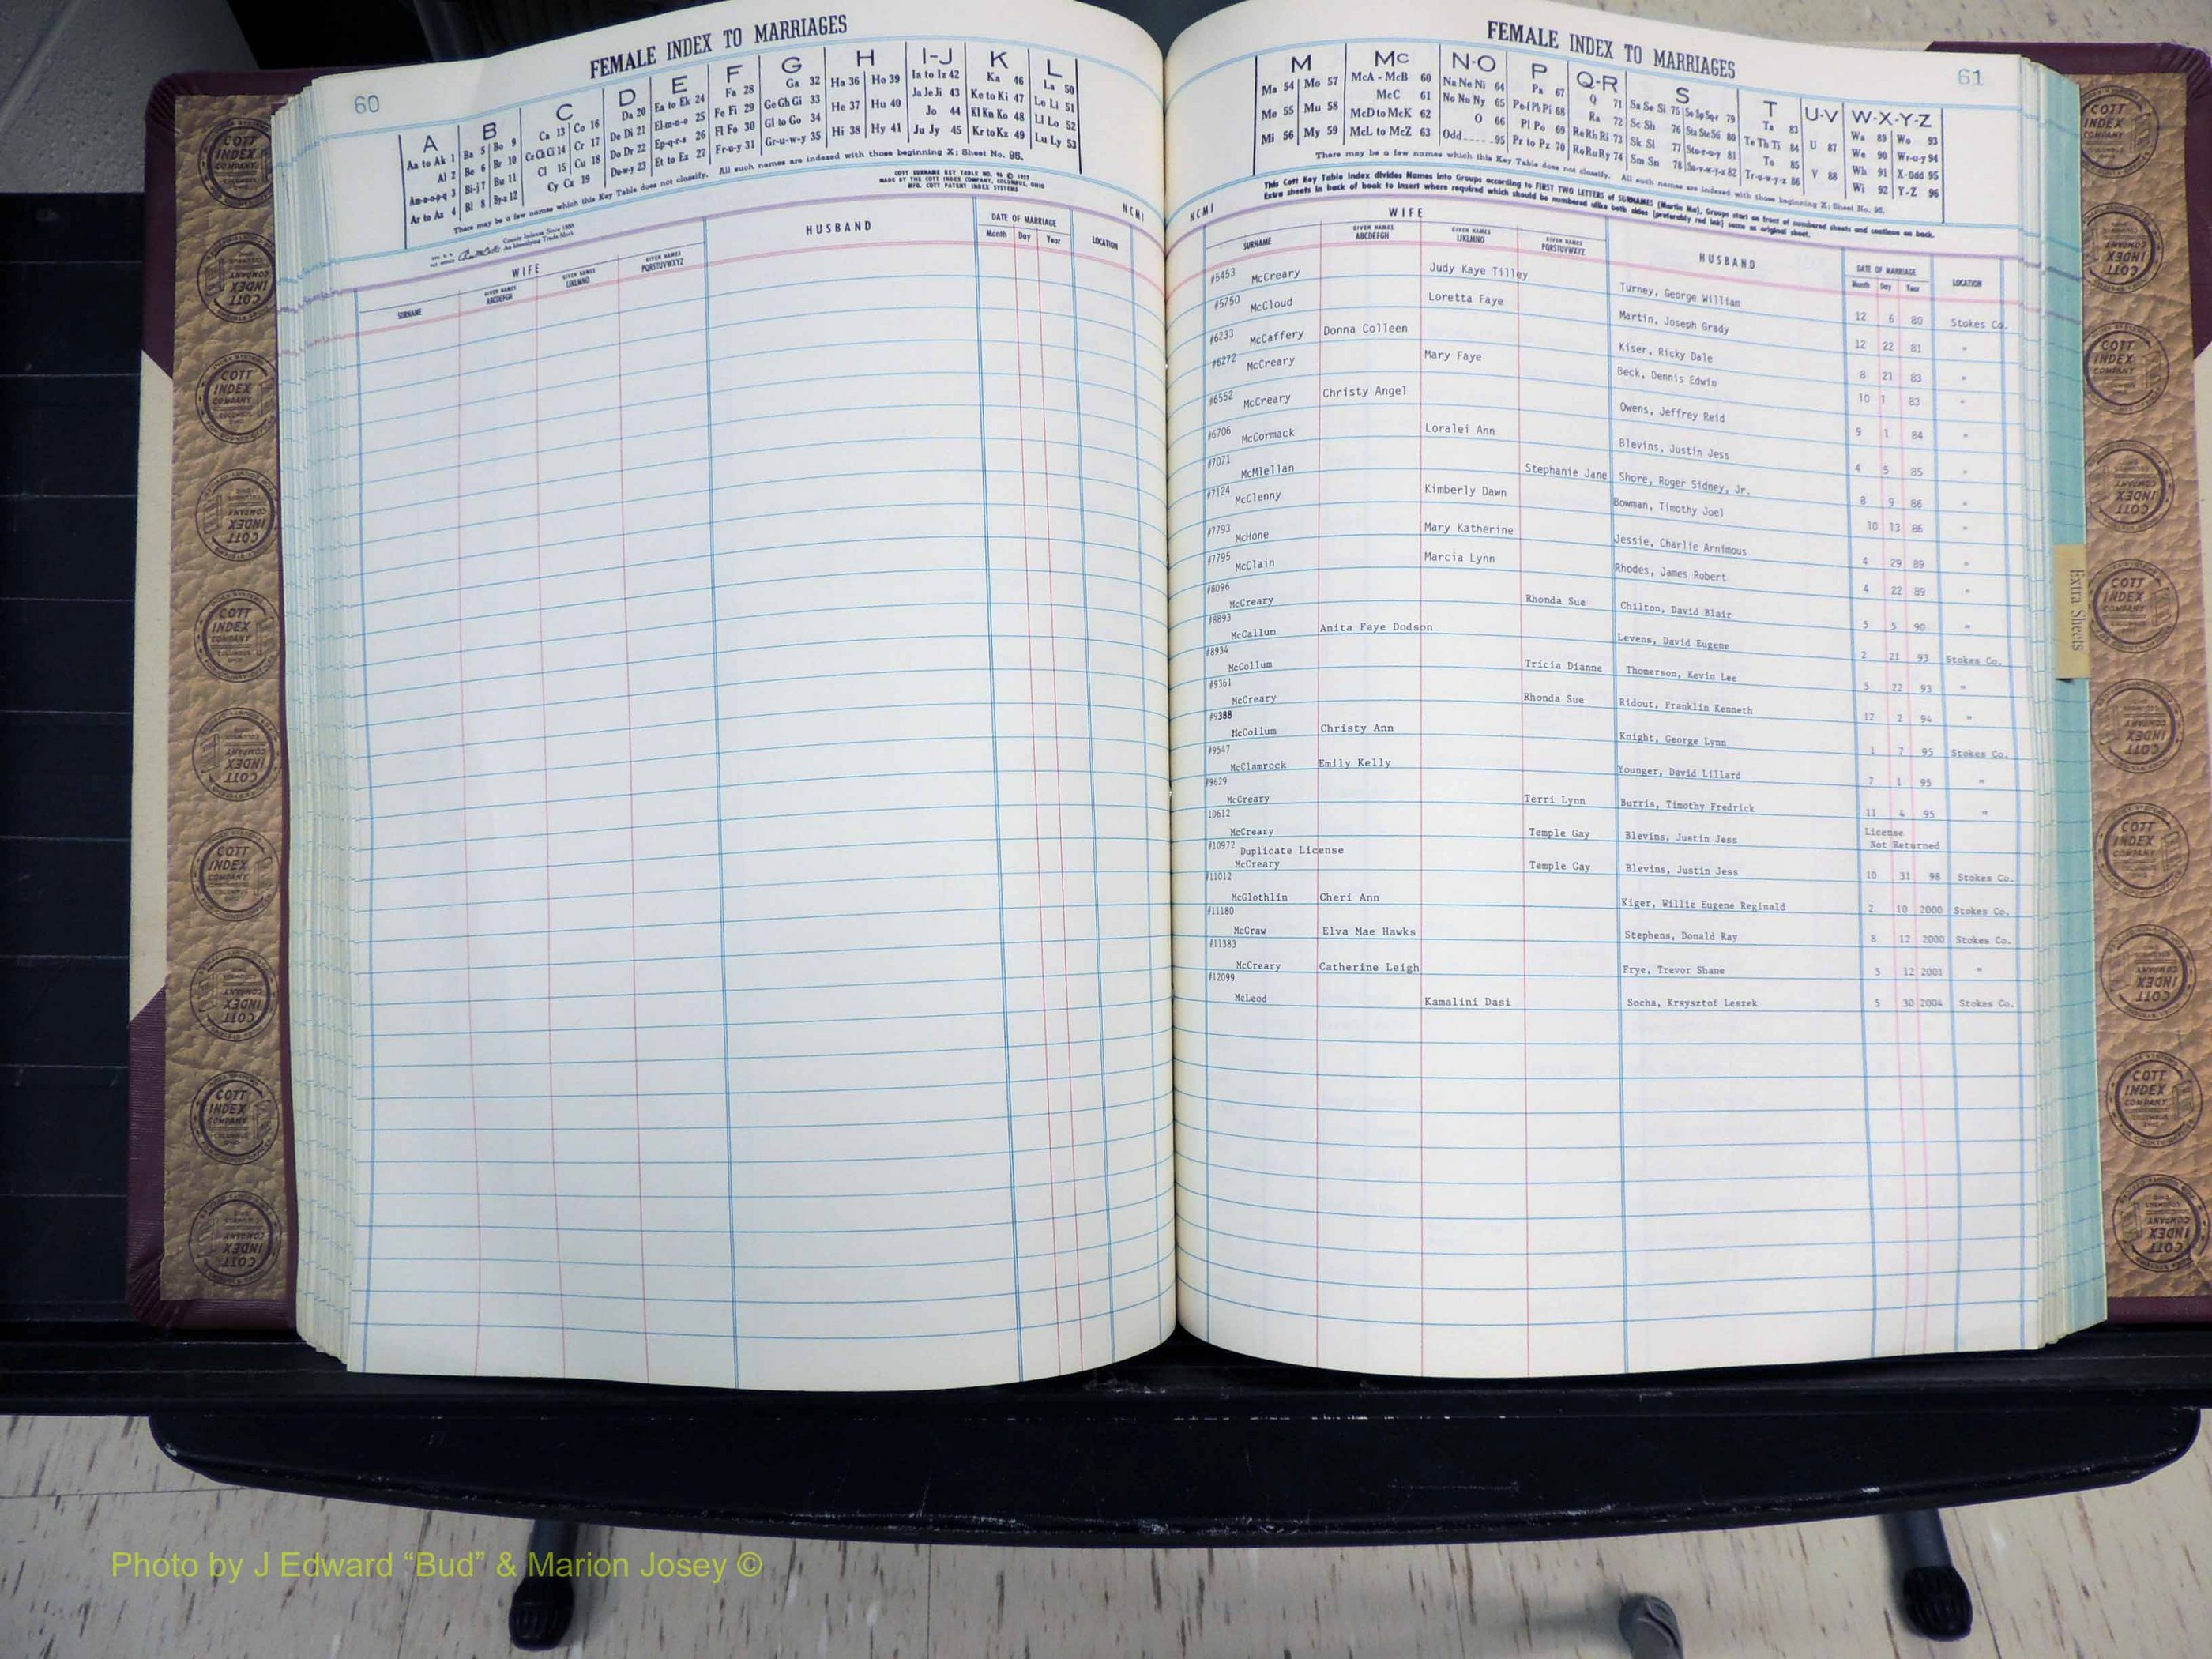 FEMALE INDEX TO MARRIAGES
60
A B C D E F G H I-J K L
Aa to Ak 1 Ba 5 Bo 9 Ca 13 Co 16 Da 20 Ea to Ek 24 Fa 28 Ga 32 Ha 36 Ho 39 Ia to Iz 42 Ka 46 La 50
Al 2 Be 6 Br 10 Ce Ch Ci 14 Cr 17 De Di 21 El-m-n-o 25 Fe Fi 29 Ge Gh Gi 33 He 37 Hu 40 Ja Je Ji 43 Ke to Ki 47 Le Li 51
Am-n-o-p-q 3 Bi-j 7 Bu 11 Cl 15 Cu 18 Do Dr 22 Ep-q-r-s 26 Fl Fo 30 Gl to Go 34 Jo 44 Kl Kn Ko 48 Ll Lo 52
Ar to Az 4 Bl 8 By-z 12 Cy Cz 19 Du-w-y 23 Et to Ez 27 Fr-u-y 31 Gr-u-w-y 35 Hi 38 Hy 41 Ju Jy 45 Kr to Kz 49 Lu Ly 53
There may be a few names which this Key Table does not classify. All such names are indexed with those beginning X; Sheet No. 95.
COTT SURNAME KEY TABLE NO. 96 © 1927
MADE BY THE COTT INDEX COMPANY, COLUMBUS, OHIO
MFG. COTT PATENT INDEX SYSTEMS
County Indexes Since 1888
An Identifying Trade Mark
NCMI
WIFE HUSBAND DATE OF MARRIAGE LOCATION
SURNAME GIVEN NAMES ABCDEFGH GIVEN NAMES IJKLMNO GIVEN NAMES PQRSTUVWXYZ Month Day Year
FEMALE INDEX TO MARRIAGES
61
M Mc N-O P Q-R S T U-V W-X-Y-Z
Ma 54 Mo 57 McA - McB 60 Na Ne Ni 64 Pa 67 Q 71 Sa Se Si 75 So Sp Sq-r 79 Ta 83 U 87 Wa 89 Wo 93
Me 55 Mu 58 McC 61 No Nu Ny 65 Pe-f Ph Pi 68 Ra 72 Sc Sh 76 Sta Ste Sti 80 Te Th Ti 84 V 88 We 90 Wr-u-y 94
Mi 56 My 59 McD to McK 62 O 66 Pl Po 69 Re Rh Ri 73 Sk Sl 77 Sto-r-u-y 81 To 85 Wh 91 X-Odd 95
McL to McZ 63 Odd 95 Pr to Pz 70 Ro Ru Ry 74 Sm Sn 78 Su-v-w-y-z 82 Tr-u-w-y-z 86 Wi 92 Y-Z 96
There may be a few names which this Key Table does not classify. All such names are indexed with those beginning X; Sheet No. 95.
This Cott Key Table Index divides Names into Groups according to FIRST TWO LETTERS of SURNAMES (Martin Ma), Groups start on front of numbered sheets and continue on back.
Extra sheets in back of book to insert where required which should be numbered alike both sides (preferably red ink) same as original sheet.
NCMI
WIFE HUSBAND DATE OF MARRIAGE LOCATION
SURNAME GIVEN NAMES ABCDEFGH GIVEN NAMES IJKLMNO GIVEN NAMES PQRSTUVWXYZ Month Day Year
#5453 McCreary Judy Kaye Tilley Turney, George William 12 6 80 Stokes Co.
#5750 McCloud Loretta Faye Martin, Joseph Grady 12 22 81 "
#6233 McCaffery Donna Colleen Kiser, Ricky Dale 8 21 83 "
#6272 McCreary Mary Faye Beck, Dennis Edwin 10 1 83 "
#6552 McCreary Christy Angel Owens, Jeffrey Reid 9 1 84 "
#6706 McCormack Loralei Ann Blevins, Justin Jess 4 5 85 "
#7071 McMlellan Stephanie Jane Shore, Roger Sidney, Jr. 8 9 86 "
#7124 McClenny Kimberly Dawn Bowman, Timothy Joel 10 13 86 "
#7793 McHone Mary Katherine Jessie, Charlie Arnimous 4 29 89 "
#7795 McClain Marcia Lynn Rhodes, James Robert 4 22 89 "
#8096 McCreary Rhonda Sue Chilton, David Blair 5 5 90 "
#8893 McCallum Anita Faye Dodson Levens, David Eugene 2 21 93 Stokes Co.
#8934 McCollum Tricia Dianne Thomerson, Kevin Lee 5 22 93 "
#9361 McCreary Rhonda Sue Ridout, Franklin Kenneth 12 2 94 "
#9388 McCollum Christy Ann Knight, George Lynn 1 7 95 Stokes Co.
#9547 McClamrock Emily Kelly Younger, David Lillard 7 1 95 "
#9629 McCreary Terri Lynn Burris, Timothy Fredrick 11 4 95 "
10612 McCreary Temple Gay Blevins, Justin Jess License Not Returned
#10972 Duplicate License
McCreary Temple Gay Blevins, Justin Jess 10 31 98 Stokes Co.
#11012 McGlothlin Cheri Ann Kiger, Willie Eugene Reginald 2 10 2000 Stokes Co.
#11180 McCraw Elva Mae Hawks Stephens, Donald Ray 8 12 2000 Stokes Co.
#11383 McCreary Catherine Leigh Frye, Trevor Shane 5 12 2001 "
#12099 McLeod Kamalini Dasi Socha, Krsysztof Leszek 5 30 2004 Stokes Co.
Extra Sheets
COTT INDEX COMPANY COLUMBUS OHIO
Photo by J Edward “Bud” & Marion Josey ©